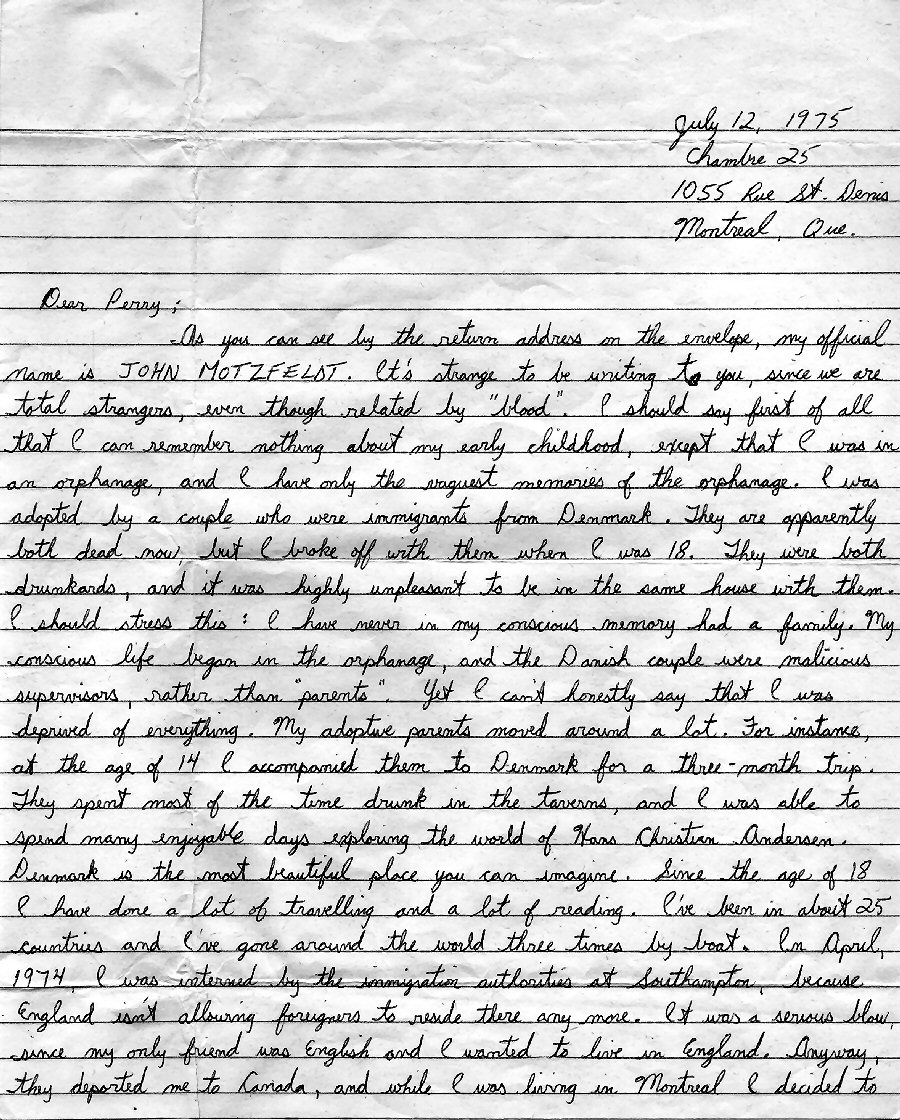 July 12, 1975
Chambre 25
1055 Rue St. Denis
Montreal, Que.
Dear Perry;
-As you can see by the return address on the envelope, my official
name is JOHN MOTZFELDT. It's strange to be writing to you, since we are
total strangers, even though related by "blood". I should say first of all
that I can remember nothing about my early childhood, except that I was in
an orphanage, and I have only the vaguest memories of the orphanage. I was
adopted by a couple who were immigrants from Denmark. They are apparently
both dead now, but I broke off with them when I was 18. They were both
drunkards, and it was highly unpleasant to be in the same house with them.
I should stress this: I have never in my conscious memory had a family. My
conscious life began in the orphanage, and the Danish couple were malicious
supervisors, rather than "parents". Yet I can't honestly say that I was
deprived of everything. My adoptive parents moved around a lot. For instance,
at the age of 14 I accompanied them to Denmark for a three-month trip.
They spent most of the time drunk in the taverns, and I was able to
spend many enjoyable days exploring the world of Hans Christian Andersen.
Denmark is the most beautiful place you can imagine. Since the age of 18
I have done a lot of travelling and a lot of reading. I've been in about 25
countries and I've gone around the world three times by boat. In April,
1974, I was interned by the immigration authorities at Southampton, because
England isn't allowing foreigners to reside there any more. It was a serious blow,
since my only friend was English and I wanted to live in England. Anyway,
they deported me to Canada, and while I was living in Montreal I decided to